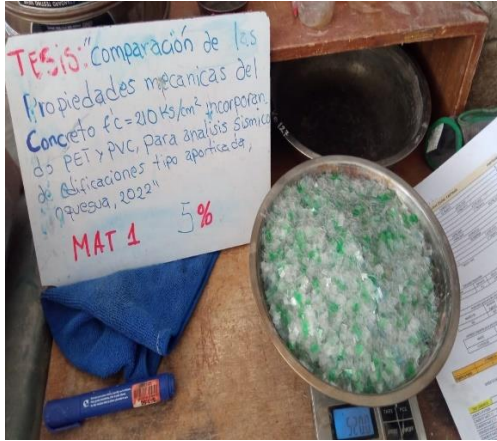 TESIS: "Comparación de las
Propiedades mecanicas del
Concreto f'c=210 KS/cm² incorporan
do PET y PVC, para analisis sismico
de edificaciones tipo aporticada,
oquegua, 2022"
MAT 1 5%